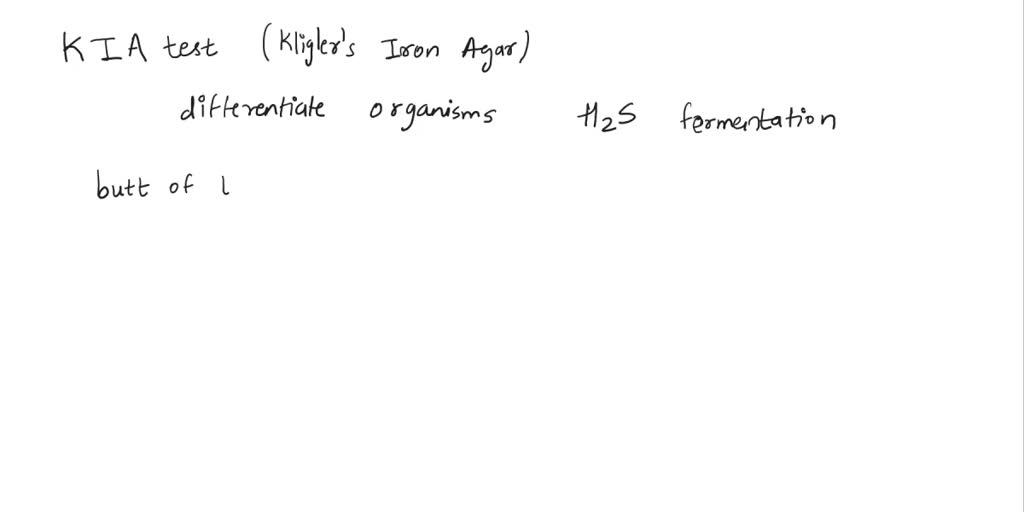 KIA test (Kligler's Iron Agar)
differentiate organisms H2S fermentation
butt of